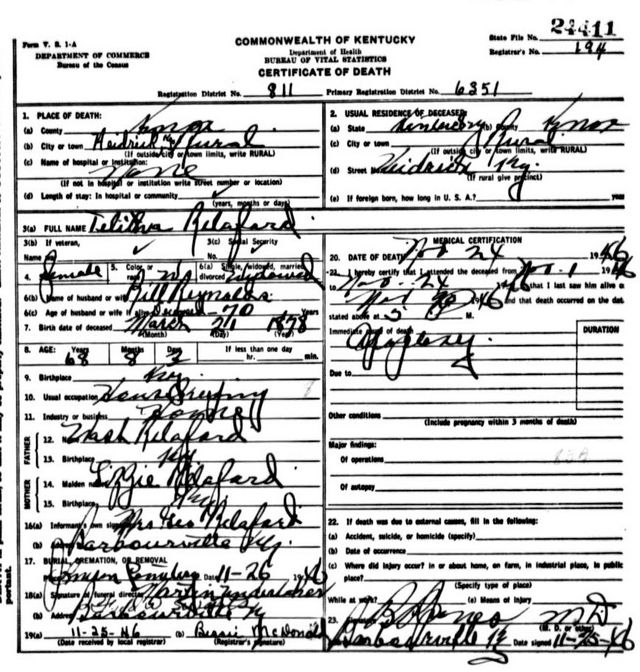 24411
Form V. S. 1-A
DEPARTMENT OF COMMERCE
Bureau of the Census
COMMONWEALTH OF KENTUCKY
Department of Health
BUREAU OF VITAL STATISTICS
CERTIFICATE OF DEATH
State File No.
Registrar's No. 194
Registration District No. 811 Primary Registration District No. 6351
1. PLACE OF DEATH:
(a) County Knox
(b) City or town Heidrick Ky Rural
(If outside city or town limits, write RURAL)
(c) Name of hospital or Institution:
None
(If not in hospital or institution write street number or location)
(d) Length of stay: In hospital or community
(years, months or days)
2. USUAL RESIDENCE OF DECEASED:
(a) State Kentucky (b) County Knox
(c) City or town Rural
(If outside city or town limits, write RURAL)
(d) Street No. Heidrick Ky.
(If rural give precinct)
(e) If foreign born, how long in U. S. A.?
3(a) FULL NAME Telitha Relaford
3(b) If veteran,
Name
3(c) Social Security
No.
4. Female
5. Color or
race W
6(a) Single, widowed, married
divorced Widowed
6(b) Name of husband or wife Bill Reynolds
6(c) Age of husband or wife if alive 70
7. Birth date of deceased March 21 1878
(Month) (Day)
8. AGE: Years Months Days If less than one day
68 8 3 hr. min.
9. Birthplace Ky.
10. Usual occupation House Keeping
11. Industry or business
FATHER
12. Relaford
13. Birthplace Ky
MOTHER
14. Maiden Lizzie Relaford
15. Birthplace Ky
16(a) Informant's own Mrs Geo Relaford
(b) Barbourville Ky.
17. BURIAL, CREMATION, OR REMOVAL
Date 11-26 1946
18(a) Signature of funeral director Martin Undertaker
(b) Address Barbourville Ky
19(a) 11-25-46 (b) Bessie McDonald
(Date received by local registrar) (Registrar's signature)
MEDICAL CERTIFICATION
20. DATE OF DEATH Nov 24 1946
I hereby certify that I attended the deceased from Nov. 1 1946
to Nov. 24 1946 that I last saw him alive o
46 and that death occurred on the date
stated above at 5 M.
Immediate cause of death
DURATION
Due to
Other conditions
(Include pregnancy within 3 months of death)
Major findings:
Of operations
Of autopsy
22. If death was due to external causes, fill in the following:
(a) Accident, suicide, or homicide (specify)
(b) Date of occurrence
(c) Where did injury occur? In or about home, on farm, in industrial place, in public
place?
(Specify type of place)
While at work? (e) Means of Injury
23. M D
(M. D. or other)
Barbourville Ky Date signed 11-25-46
portant.